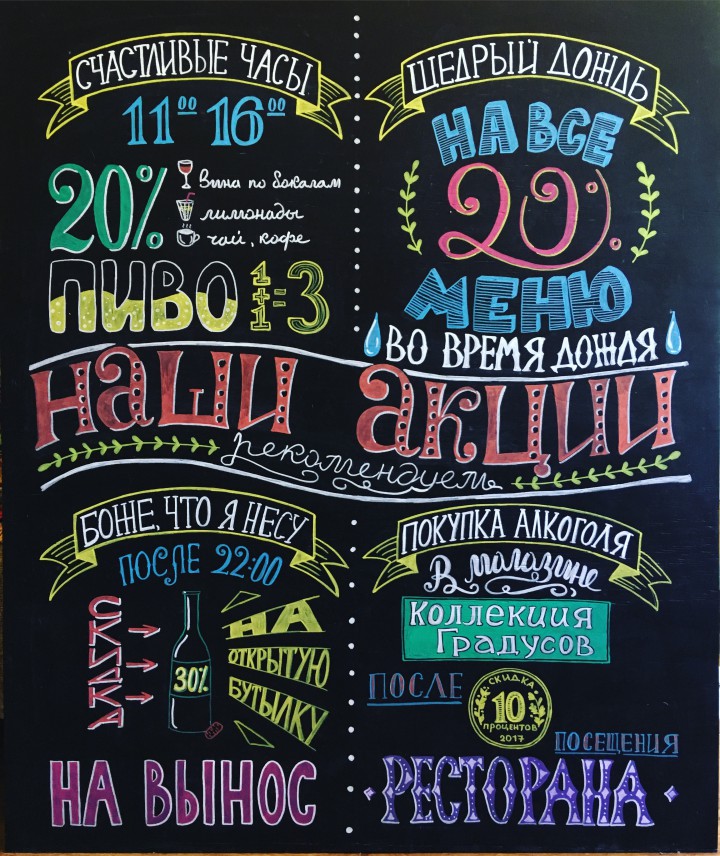 СЧАСТЛИВЫЕ ЧАСЫ
11⁰⁰ 16⁰⁰
20%
Вина по бокалам
лимонады
чай, кофе
ПИВО 1+1=3
ЩЕДРЫЙ ДОЖДЬ
НА ВСЕ
20%
МЕНЮ
ВО ВРЕМЯ ДОЖДЯ
наши акции
рекомендуем
БОЖЕ, ЧТО Я НЕСУ
ПОСЛЕ 22:00
СКИДКА
30%
НА
ОТКРЫТУЮ
БУТЫЛКУ
НА ВЫНОС
ПОКУПКА АЛКОГОЛЯ
В магазине
Коллекция
Градусов
ПОСЛЕ
СКИДКА
10
ПРОЦЕНТОВ
2017
ПОСЕЩЕНИЯ
РЕСТОРАНА